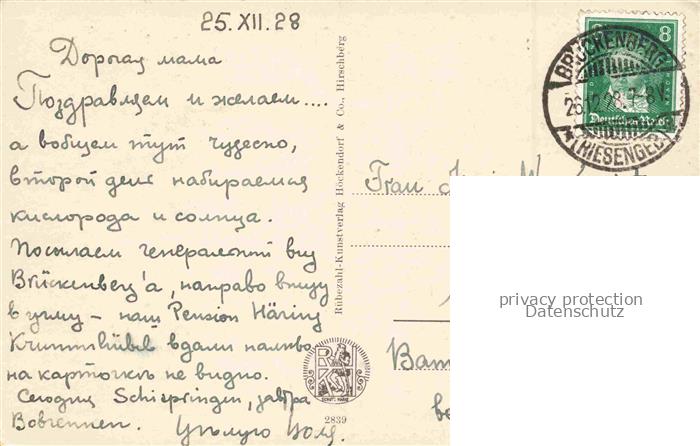 25.XII.28
Дорогая мама
Поздравляем и желаем....
а вообщем тут чудесно,
второй день набираемся
кислорода и солнца.
Посылаем генеральный вид
Brückenberg'а, направо внизу
в углу – наш Pension Häring
Krummhübel вдали налево
на карточкѣ не видно.
Сегодня Schispringen, завтра
Bobrennen. Целую
Rübezahl-Kunstverlag Höckendorf & Co., Hirschberg
2839
8
BRÜCKENBERG
26.12.28. 7-8V.
(RIESENGEB.)
Deutsches Reich
Frau
privacy protection
Datenschutz